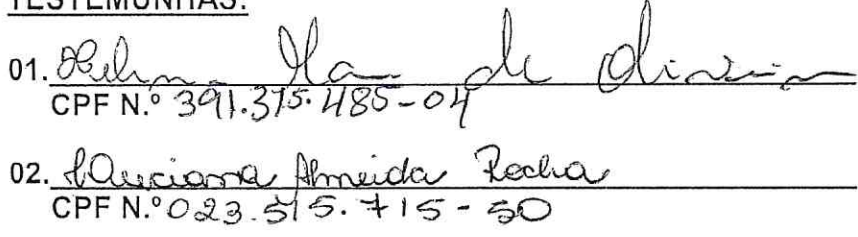 TESTEMUNHAS:
01. de Oliveira
CPF N.º 391.375.485-04
02. Almeida Rocha
CPF N.º 023.515.715-50